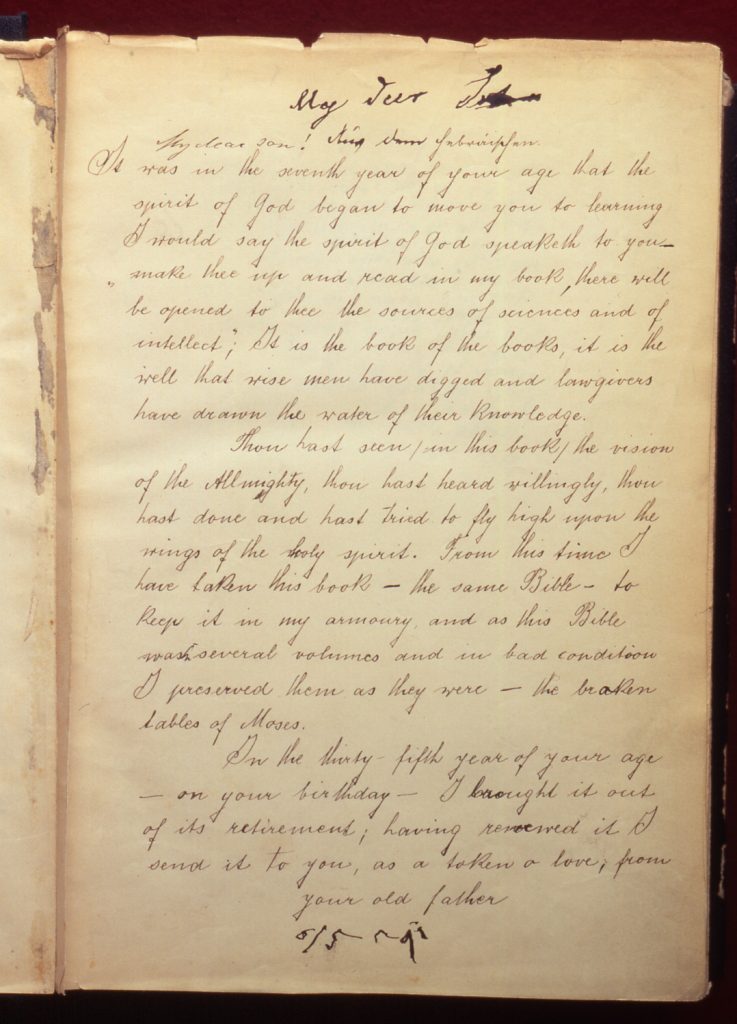 My deer
My dear son! Aus dem Hebräischen.
It was in the seventh year of your age that the
spirit of God began to move you to learning
I would say the spirit of God speaketh to you—
"make thee up and read in my book, there will
be opened to thee the sources of sciences and of
intellect"; It is the book of the books, it is the
well that wise men have digged and lawgivers
have drawn the water of their knowledge.
Thou hast seen /in this book/ the vision
of the Allmighty, thou hast heard willingly, thou
hast done and hast tried to fly high upon the
wings of the holy spirit. From this time I
have taken this book — the same Bible — to
keep it in my armoury, and as this Bible
was several volumes and in bad condition
I preserved them as they were — the broken
tables of Moses.
In the thirty-fifth year of your age
— on your birthday — I brought it out
of its retirement; having renewed it I
send it to you, as a token o love, from
your old father
6/5